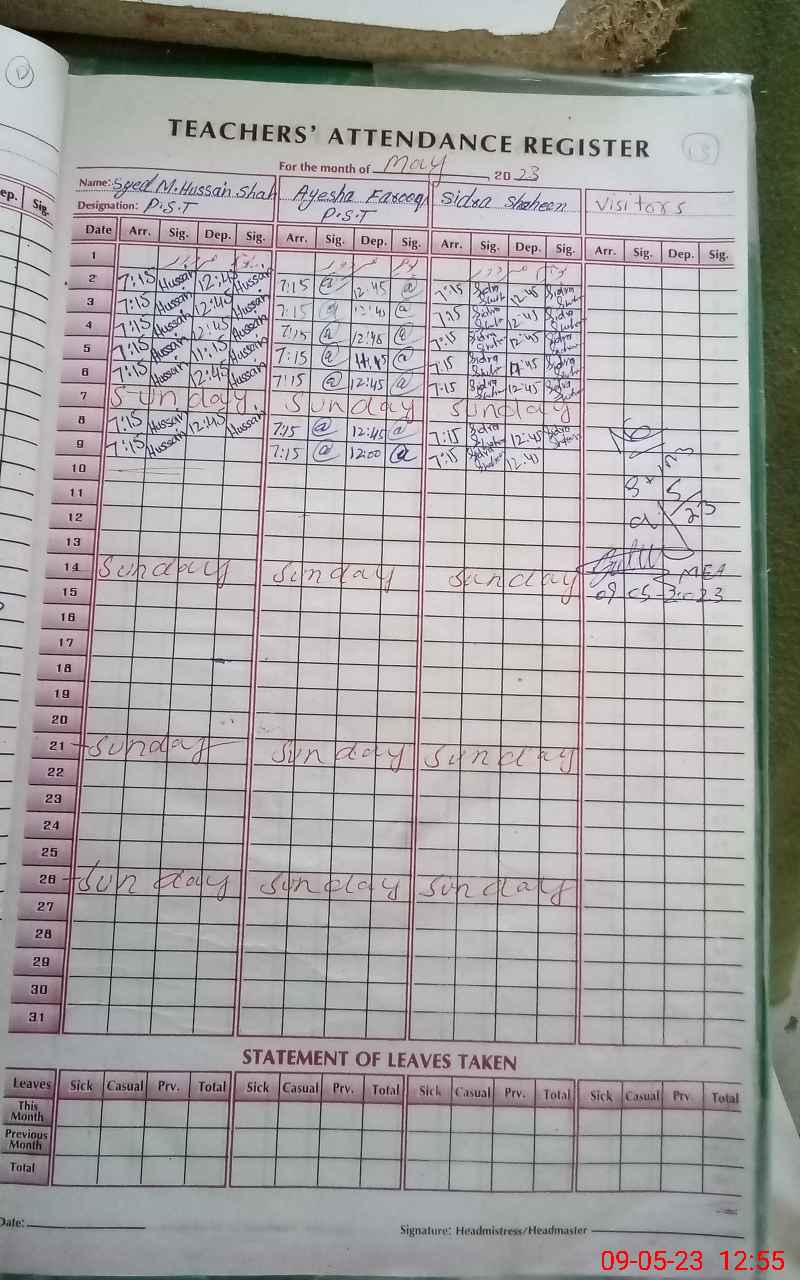 TEACHERS' ATTENDANCE REGISTER
For the month of May 2023
Name: Syed M. Hussain Shah Ayesha Farooq Sidra Shaheen Visitors
Designation: P.S.T P.S.T
Date Arr. Sig. Dep. Sig. Arr. Sig. Dep. Sig. Arr. Sig. Dep. Sig. Arr. Sig. Dep. Sig.
1
2 7:15 Hussain 12:45 Hussain 7:15 @ 12:45 @ 7:15 Sidra Shaheen 12:45 Sidra Shaheen
3 7:15 Hussain 12:45 Hussain 7:15 @ 12:45 @ 7:15 Sidra Shaheen 12:45 Sidra Shaheen
4 7:15 Hussain 12:45 Hussain 7:15 @ 12:45 @ 7:15 Sidra Shaheen 12:45 Sidra Shaheen
5 7:15 Hussain 11:15 Hussain 7:15 @ 11:15 @ 7:15 Sidra Shaheen Sidra Shaheen
6 7:15 Hussain 12:45 Hussain 7:15 @ 12:45 @ 7:15 Sidra Shaheen 12:45 Sidra Shaheen
7 Sunday Sunday Sunday
8 7:15 Hussain 12:45 Hussain 7:15 @ 12:45 @ 7:15 Sidra Shaheen 12:45 Sidra Shaheen
9 7:15 Hussain 7:15 @ 12:00 @ 7:15 Sidra Shaheen 12:45
10
11
12
13
14 Sunday Sunday Sunday MEA
15 09-05-2023
16
17
18
19
20
21 Sunday Sunday Sunday
22
23
24
25
26 Sunday Sunday Sunday
27
28
29
30
31
STATEMENT OF LEAVES TAKEN
Leaves Sick Casual Prv. Total Sick Casual Prv. Total Sick Casual Prv. Total Sick Casual Prv. Total
This Month
Previous Month
Total
Date:
Signature: Headmistress/Headmaster
09-05-23 12:55